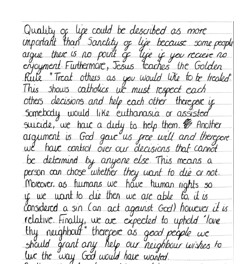 Quality of life could be described as more
important than Sanctity of life because some people
argue there is no point of life if you receive no
enjoyment. Furthermore, Jesus teaches the Golden
Rule "Treat others as you would like to be treated"
This shows catholics we must respect each
others decisions and help each other therefore if
somebody would like euthanasia or assisted
suicide, we have a duty to help them. Another
argument is God gave us free will and therefore
we have control over our decisions that cannot
be determind by anyone else. This means a
person can chose whether they want to die or not.
Moreover as humans we have human rights so
if we want to die then we are able to. it is
considered a sin (an act against God) however it is
relative. Finally, we are expected to uphold "love
thy neighbour" therefore as good people we
should grant any help our neighbour wishes to
live the way God would have wanted.